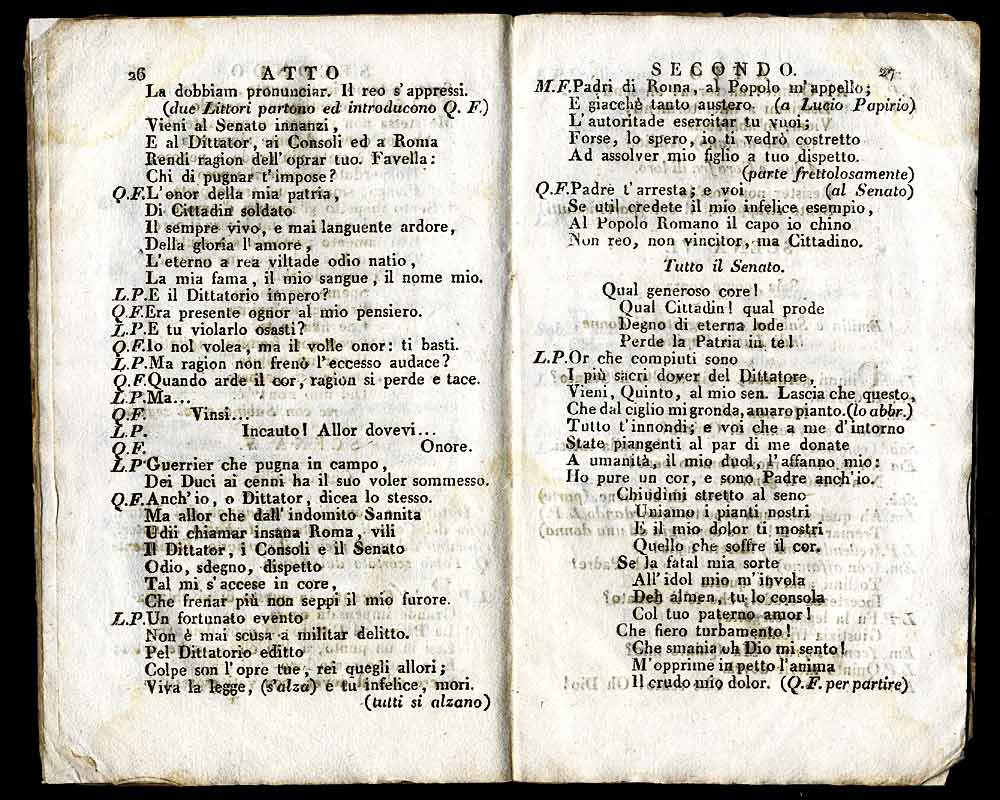 26 ATTO
La dobbiam pronunciar. Il reo s'appressi.
(due Littori partono ed introducono Q. F.)
Vieni al Senato innanzi,
E al Dittator, ai Consoli ed a Roma
Rendi ragion dell'oprar tuo. Favella:
Chi di pugnar t'impose?
Q.F.L'onor della mia patria,
Di Cittadin soldato
Il sempre vivo, e mai languente ardore,
Della gloria l'amore,
L'eterno a rea viltade odio natio,
La mia fama, il mio sangue, il nome mio.
L.P.E il Dittatorio impero?
Q.F.Era presente ognor al mio pensiero.
L.P.E tu violarlo osasti?
Q.F.Io nol volea, ma il volle onor: ti basti.
L.P.Ma ragion non frenò l'eccesso audace?
Q.F.Quando arde il cor, ragion si perde e tace.
L.P.Ma...
Q.F. Vinsi...
L.P. Incauto! Allor dovevi...
Q.F. Onore.
L.P.Guerrier che pugna in campo,
Dei Duci ai cenni ha il suo voler sommesso.
Q.F.Anch'io, o Dittator, dicea lo stesso.
Ma allor che dall'indomito Sannita
Udii chiamar insana Roma, vili
Il Dittator, i Consoli e il Senato
Odio, sdegno, dispetto
Tal mi s'accese in core,
Che frenar più non seppi il mio furore.
L.P.Un fortunato evento
Non è mai scusa a militar delitto.
Pel Dittatorio editto
Colpe son l'opre tue, rei quegli allori;
Viva la legge, (s'alza) e tu infelice, mori.
(tutti si alzano)
SECONDO. 27
M.F.Padri di Roma, al Popolo m'appello;
E giacchè tanto austero (a Lucio Papirio)
L'autoritade esercitar tu vuoi;
Forse, lo spero, io ti vedrò costretto
Ad assolver mio figlio a tuo dispetto.
(parte frettolosamente)
Q.F.Padre t'arresta; e voi (al Senato)
Se util credete il mio infelice esempio,
Al Popolo Romano il capo io chino
Non reo, non vincitor, ma Cittadino.
Tutto il Senato.
Qual generoso core!
Qual Cittadin! qual prode
Degno di eterna lode
Perde la Patria in te!
L.P.Or che compiuti sono
I più sacri dover del Dittatore,
Vieni, Quinto, al mio sen. Lascia che questo,
Che dal ciglio mi gronda, amaro pianto.(lo abbr.)
Tutto t'innondi; e voi che a me d'intorno
State piangenti al par di me donate
A umanità, il mio duol, l'affanno mio:
Ho pure un cor, e sono Padre anch'io.
Chiudimi stretto al seno
Uniamo i pianti nostri
E il mio dolor ti mostri
Quello che soffre il cor.
Se la fatal mia sorte
All'idol mio m'invola
Deh almen, tu lo consola
Col tuo paterno amor!
Che fiero turbamento!
Che smania oh Dio mi sento!
M'opprime in petto l'anima
Il crudo mio dolor. (Q.F. per partire)